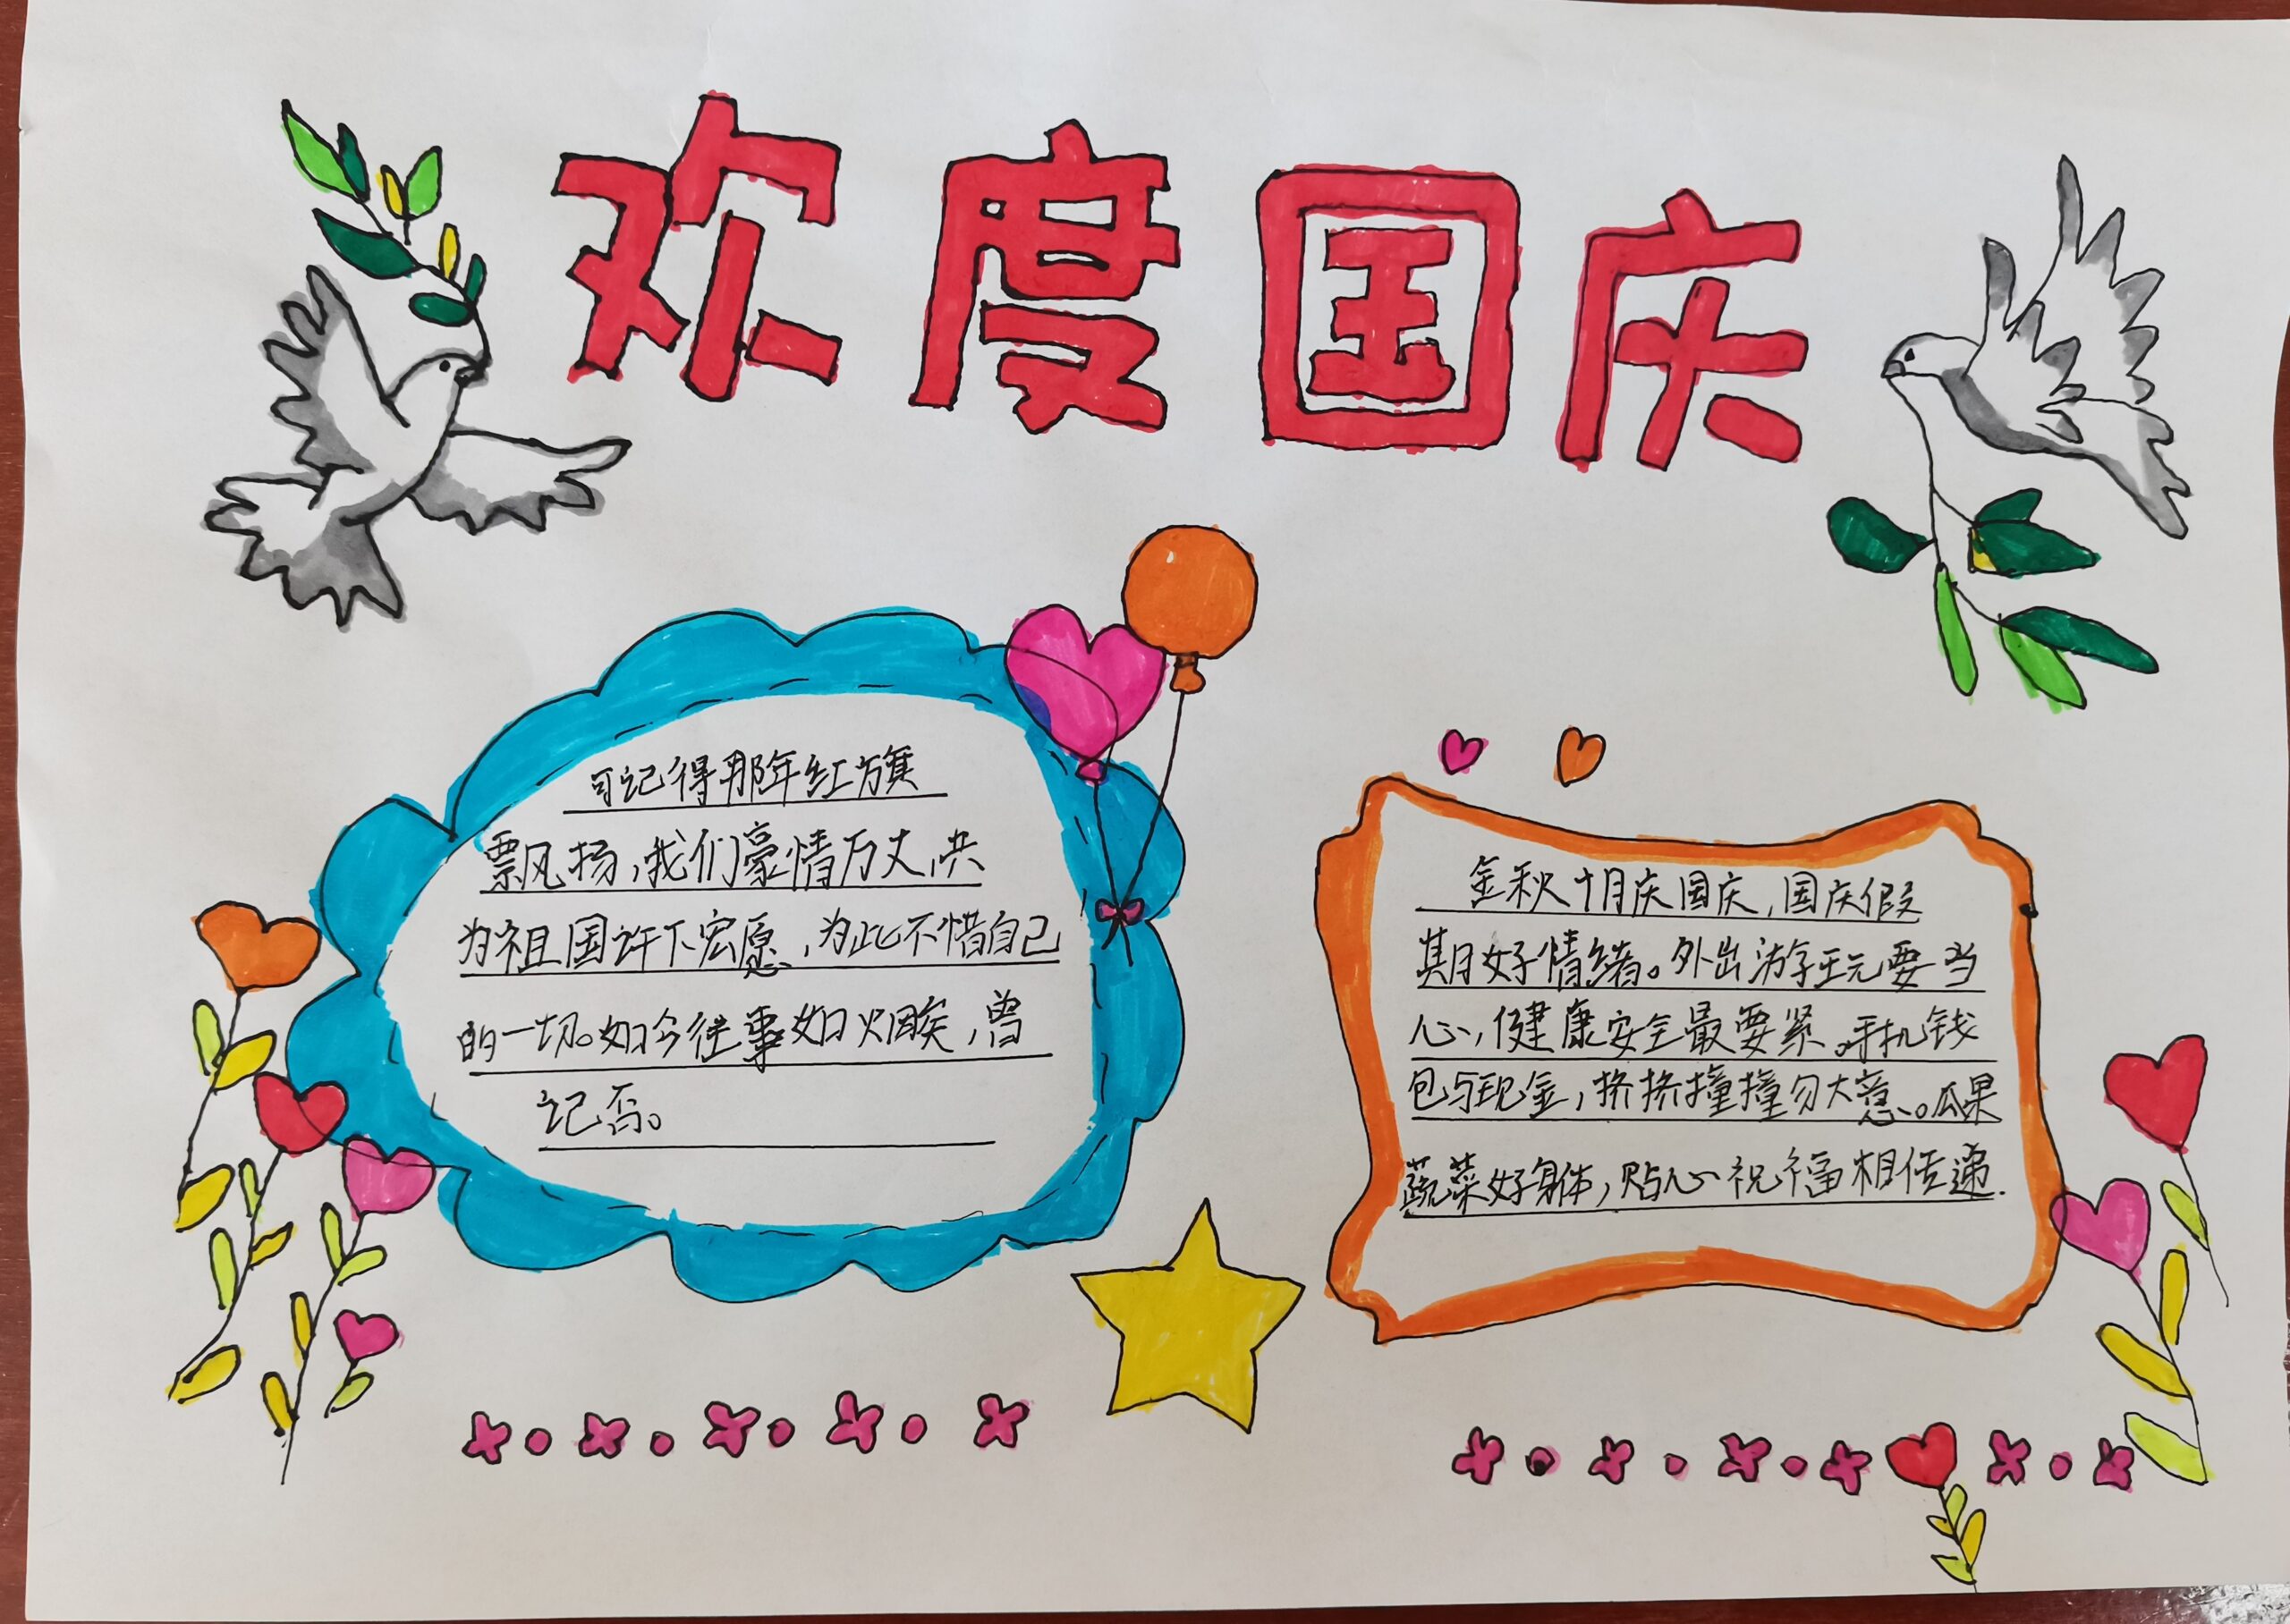 欢度国庆
可记得那年红旗
飘扬,我们豪情万丈,共
为祖国许下宏愿,为此不惜自己
的一切。如今往事如烟,曾
记否。
金秋十月庆国庆,国庆假
期好情绪。外出游玩要当
心,健康安全最要紧。手机钱
包与现金,挤挤撞撞勿大意。瓜果
蔬菜好身体,贴心祝福相传递.